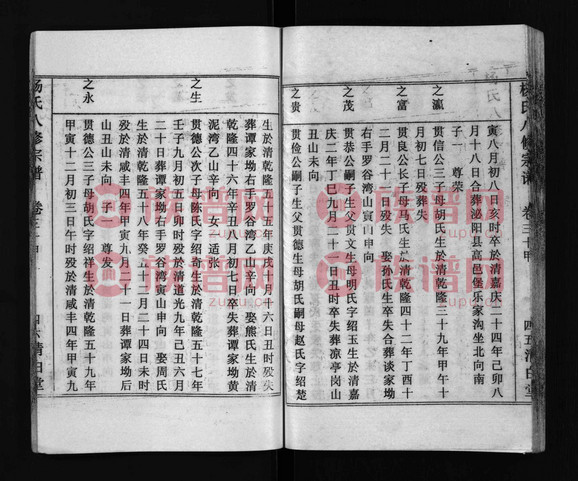 杨氏八修宗谱 卷三十甲 四五 清白堂
寅八月初八日亥时卒於清嘉庆二十四年己卯八
月十八日合葬泌阳县高邑堡乐家沟坐北向南
子一 尊荣
之瀛
贯信公三子母胡氏生於清乾隆三十九年甲午十
月初七日殁葬失
之富
贯良公长子母马氏生於清乾隆四十二年丁酉十
二月二十日殁葬失 娶孙氏生卒失合葬谈家坳
右手罗谷湾山寅山申向
之茂
贯恭公嗣子生父贯文生母明氏字绍玉生於清嘉
庆二年丁巳九月二十二日丑时卒失葬凉亭岗山
丑山未向
之贵
贯俭公嗣子生父贯德生母胡氏嗣母赵氏字绍楚
生於清乾隆五十五年庚戌十月十六日丑时殁失
葬谭家坳右手罗谷湾乙山辛向 娶熊氏生於清
乾隆四十六年辛丑八月初七日卒失葬谭家坳黄
泥湾乙山辛向 女一 适张
之生
贯德公次子母陈氏字绍奇生於清乾隆五十七年
壬子九月初五日卯时殁於清道光九年己丑六月
二十日葬谭家坳右手罗谷湾寅山申向 娶周氏
生於清乾隆五十八年癸丑十月二十四日未时
殁於清咸丰四年甲寅九月十一日葬谭家坳后
山丑山未向 子一 尊发
之永
贯德公三子母胡氏字绍祥生於清乾隆五十九年
甲寅十二月初三日午时殁於清咸丰四年甲寅九
杨氏八修宗谱 卷三十甲 四六 清白堂